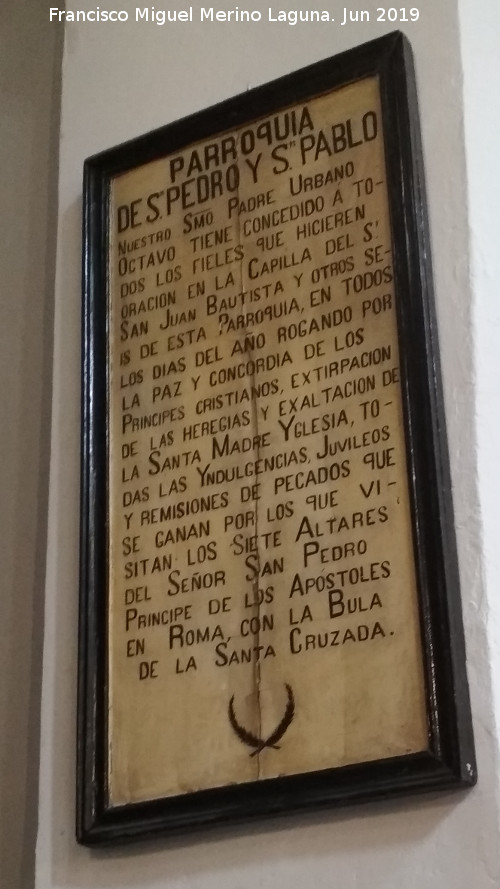 Francisco Miguel Merino Laguna. Jun 2019
PARROQUIA
DE Sn. PEDRO Y Sn. PABLO
NUESTRO SMO PADRE URBANO
OCTAVO TIENE CONCEDIDO Á TO-
DOS LOS FIELES QUE HICIEREN
ORACION EN LA CAPILLA DEL Sr.
SAN JUAN BAUTISTA Y OTROS SE-
IS DE ESTA PARROQUIA, EN TODOS
LOS DIAS DEL AÑO ROGANDO POR
LA PAZ Y CONCORDIA DE LOS
PRINCIPES CRISTIANOS, EXTIRPACION
DE LAS HEREGIAS Y EXALTACION DE
LA SANTA MADRE YGLESIA, TO-
DAS LAS YNDULGENCIAS, JUVILEOS
Y REMISIONES DE PECADOS QUE
SE GANAN POR LOS QUE VI-
SITAN LOS SIETE ALTARES
DEL SEÑOR SAN PEDRO
PRINCIPE DE LOS APÓSTOLES
EN ROMA, CON LA BULA
DE LA SANTA CRUZADA.